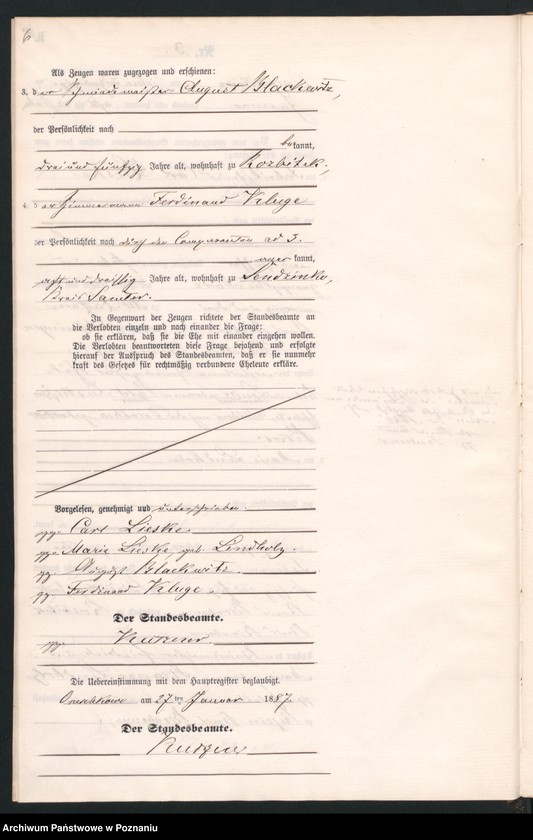 6
Als Zeugen waren zugezogen und erschienen:
3. der Schmiedemeister August Blackwitz,
der Persönlichkeit nach
bekannt,
dreiundfünfzig Jahre alt, wohnhaft zu
4. der Zimmermann Ferdinand Kluge
der Persönlichkeit nach durch den Comparenten ad 3.
aner kannt,
achtunddreissig Jahre alt, wohnhaft zu
Kreis Samter.
In Gegenwart der Zeugen richtete der Standesbeamte an
die Verlobten einzeln und nach einander die Frage:
ob sie erklären, daß sie die Ehe mit einander eingehen wollen.
Die Verlobten beantworteten diese Frage bejahend und erfolgte
hierauf der Ausspruch des Standesbeamten, daß er sie nunmehr
kraft des Gesetzes für rechtmäßig verbundene Eheleute erkläre.
Vorgelesen, genehmigt und unterschrieben.
Carl Lieske.
Marie Lieske, geb. Lindholz.
August Blackwitz.
Ferdinand Kluge.
Der Standesbeamte.
Die Uebereinstimmung mit dem Hauptregister beglaubigt.
am 27ten Januar 1887.
Der Standesbeamte.
Archiwum Państwowe w Poznaniu